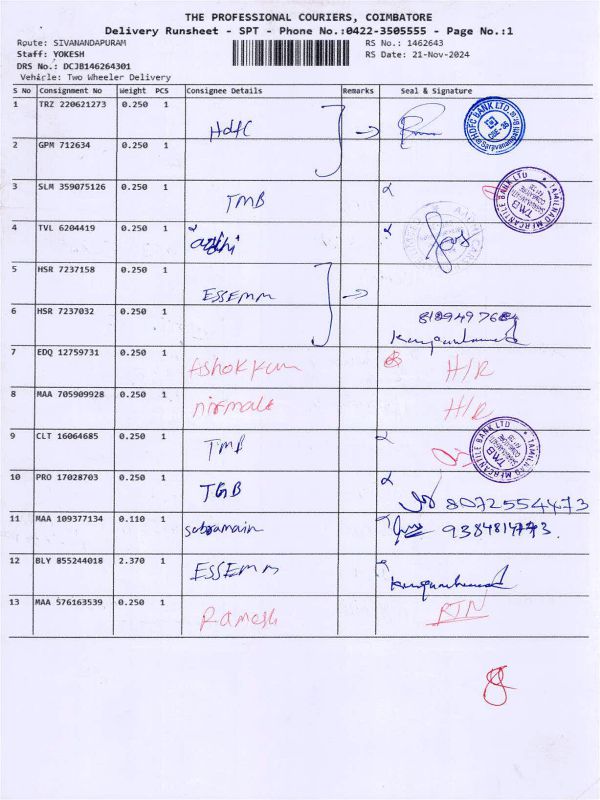 THE PROFESSIONAL COURIERS, COIMBATORE
Delivery Runsheet - SPT - Phone No.:0422-3505555 - Page No.:1
Route: SIVANANDAPURAM RS No.: 1462643
Staff: YOKESH RS Date: 21-Nov-2024
DRS No.: DCJB146264301
Vehicle: Two Wheeler Delivery
S No Consignment No Weight PCS Consignee Details Remarks Seal & Signature
1 TRZ 220621273 0.250 1 Hdfc HDFC BANK LTD.
2 GPM 712634 0.250 1
3 SLM 359075126 0.250 1 TMB TAMILNAD MERCANTILE BANK LTD TMB
4 TVL 6204419 0.250 1
5 HSR 7237158 0.250 1 ESSEMM
6 HSR 7237032 0.250 1
7 EDQ 12759731 0.250 1 Ashokkum H/R
8 MAA 705909928 0.250 1 nirmala H/R
9 CLT 16064685 0.250 1 TMB TAMILNAD MERCANTILE BANK LTD TMB
10 PRO 17028703 0.250 1 TGB 8072554473
11 MAA 109377134 0.110 1 subramain
12 BLY 855244018 2.370 1 ESSEMM
13 MAA 576163539 0.250 1 Ramesh RTN